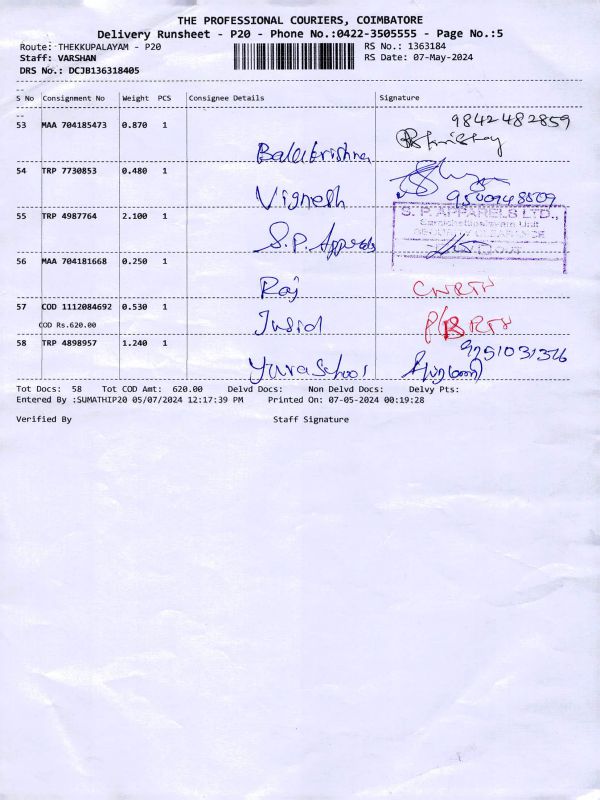 THE PROFESSIONAL COURIERS, COIMBATORE
Delivery Runsheet - P20 - Phone No.:0422-3505555 - Page No.:5
Route: THEKKUPALAYAM - P20 RS No.: 1363184
Staff: VARSHAN RS Date: 07-May-2024
DRS No.: DCJB136318405
S No Consignment No Weight PCS Consignee Details Signature
53 MAA 704185473 0.870 1 9842482859
Balakrishna
54 TRP 7730853 0.480 1
Vignesh
55 TRP 4987764 2.100 1 S. P. APPARELS LTD.,
S.P. Apparels
56 MAA 704181668 0.250 1
Raj CNRTN
57 COD 1112084692 0.530 1
COD Rs.620.00
58 TRP 4898957 1.240 1
Yuva School
Tot Docs: 58 Tot COD Amt: 620.00 Delvd Docs: Non Delvd Docs: Delvy Pts:
Entered By :SUMATHIP20 05/07/2024 12:17:39 PM Printed On: 07-05-2024 00:19:28
Verified By Staff Signature